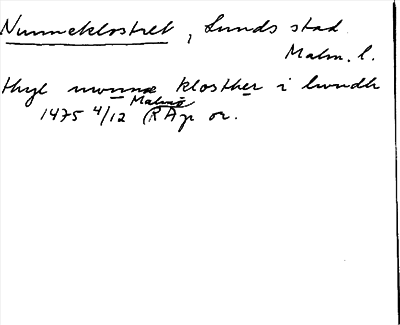 Nunneklostret, Lunds stad
Malm. l.
thyl nwnnæ klosther i lwndh
Malmö
1475 4/12 (RAp or.